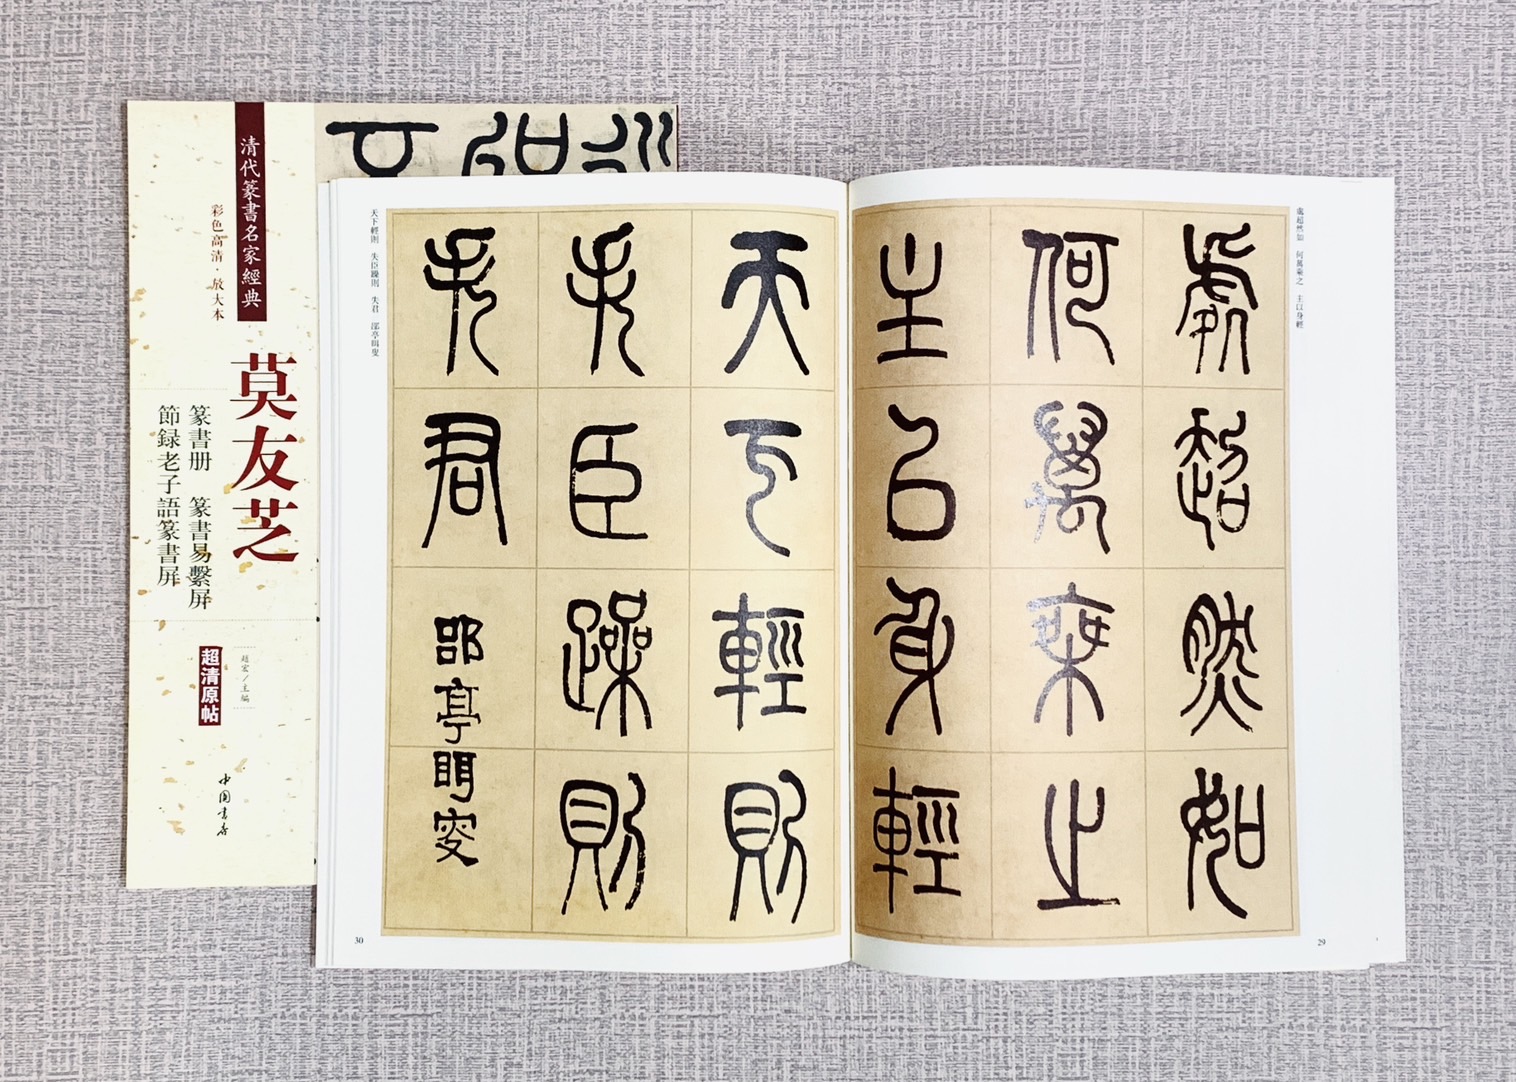 清代篆書名家經典
彩色高清·放大本
莫友芝
篆書册 篆書易繫屏
節録老子語篆書屏
趙宏/主編
超清原帖
中国书店
處超然如 何萬乘之 主以身輕
處超然如
何萬乘之
主以身輕
29
天下輕則
失臣躁則
失君
郘亭眲叟
天下輕則 失臣躁則 失君 郘亭眲叟
30